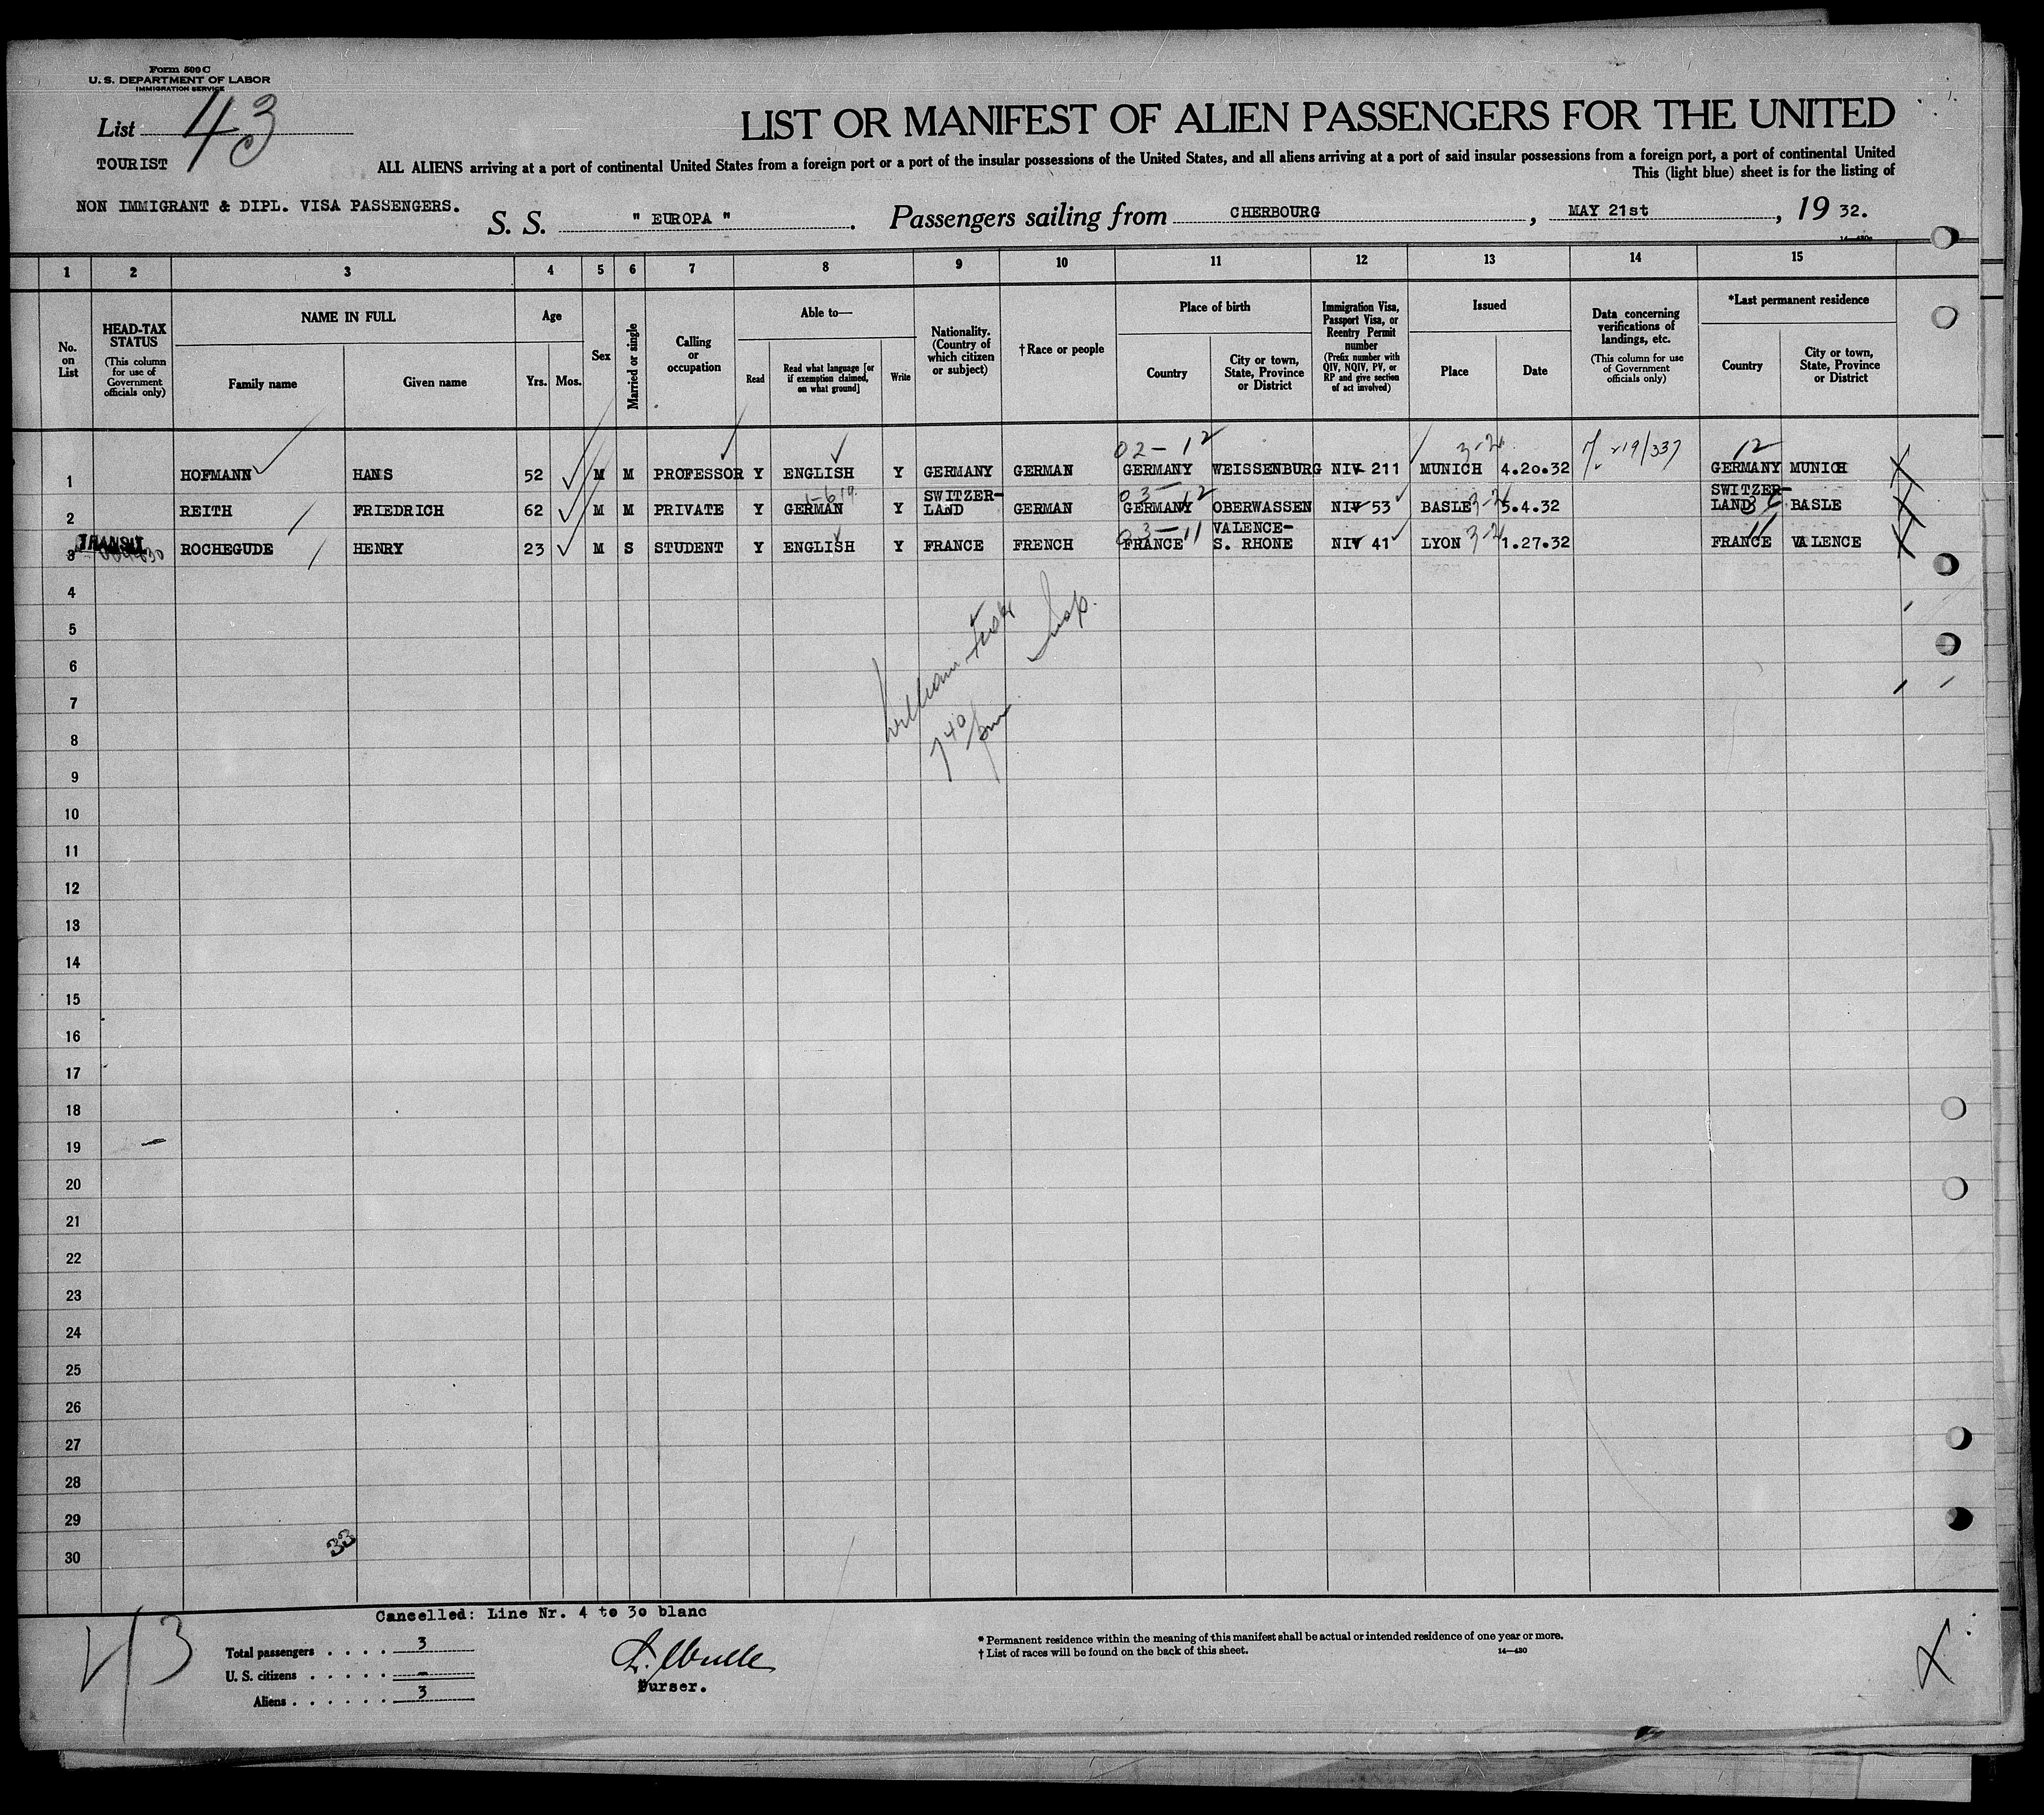 Form 500 C
U. S. DEPARTMENT OF LABOR
IMMIGRATION SERVICE
List 43
TOURIST
LIST OR MANIFEST OF ALIEN PASSENGERS FOR THE UNITED
ALL ALIENS arriving at a port of continental United States from a foreign port or a port of the insular possessions of the United States, and all aliens arriving at a port of said insular possessions from a foreign port, a port of continental United
This (light blue) sheet is for the listing of
NON IMMIGRANT & DIPL. VISA PASSENGERS.
S. S. " EUROPA ". Passengers sailing from CHERBOURG, MAY 21st, 19 32.
14—430
1 2 3 4 5 6 7 8 9 10 11 12 13 14 15
No. on List
HEAD-TAX STATUS (This column for use of Government officials only)
NAME IN FULL
Family name Given name
Age
Yrs. Mos.
Sex
Married or single
Calling or occupation
Able to—
Read
Read what language [or if exemption claimed, on what ground]
Write
Nationality. (Country of which citizen or subject)
† Race or people
Place of birth
Country
City or town, State, Province or District
Immigration Visa, Passport Visa, or Reentry Permit number (Prefix number with QIV, NQIV, PV, or RP and give section of act involved)
Issued
Place Date
Data concerning verifications of landings, etc. (This column for use of Government officials only)
*Last permanent residence
Country
City or town, State, Province or District
02-12 3-2 12
1 HOFMANN HANS 52 M M PROFESSOR Y ENGLISH Y GERMANY GERMAN GERMANY WEISSENBURG NIV 211 MUNICH 4.20.32 GERMANY MUNICH
03-12
2 REITH FRIEDRICH 62 M M PRIVATE Y GERMAN Y SWITZER-LAND GERMAN GERMANY OBERWASSEN NIV 53 BASLE 5.4.32 SWITZER-LAND BASLE
03-11 11
TRANSIT
3 ROCHEGUDE HENRY 23 M S STUDENT Y ENGLISH Y FRANCE FRENCH FRANCE VALENCE-S. RHONE NIV 41 LYON 1.27.32 FRANCE VALENCE
4
5
6
7
8
9
10
11
12
13
14
15
16
17
18
19
20
21
22
23
24
25
26
27
28
29
30
William
Insp.
7 40 pm
33
Cancelled: Line Nr. 4 to 30 blanc
43
Total passengers . . . . . 3
U. S. citizens . . . . . —
Aliens . . . . . . 3
Purser.
* Permanent residence within the meaning of this manifest shall be actual or intended residence of one year or more.
† List of races will be found on the back of this sheet.
14—430